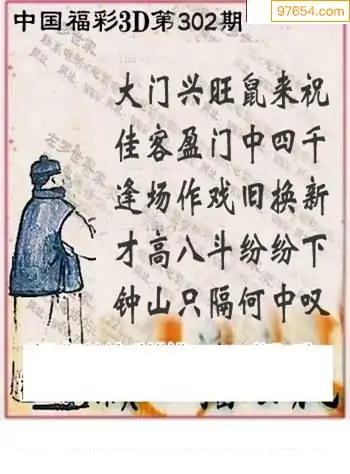 中国福彩3D第302期
97654.com
大门兴旺鼠来祝
佳客盈门中四千
逢场作戏旧换新
才高八斗纷纷下
钟山只隔何中叹